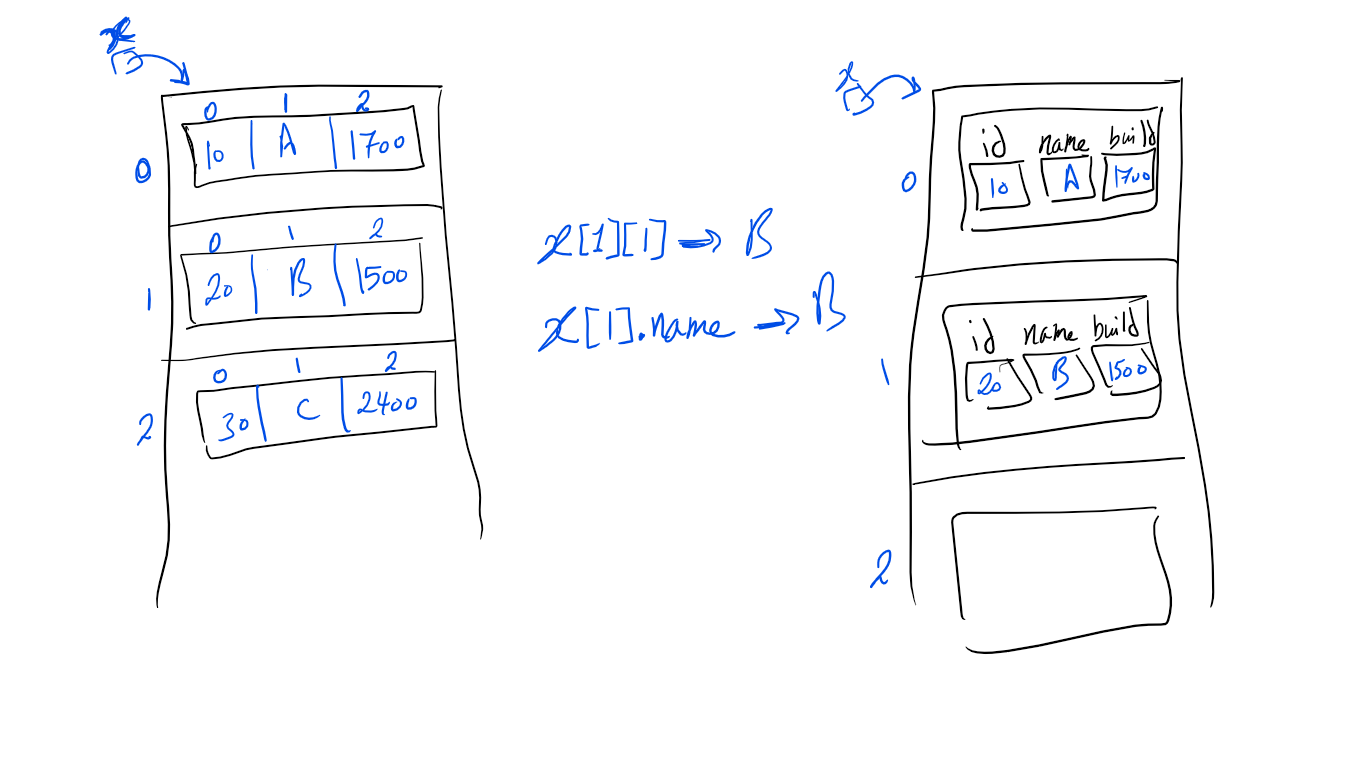 x
0 1 2
0 10 A 1700
0 1 2
1 20 B 1500
0 1 2
2 30 C 2400
x[1][1] → B
x[1].name → B
x
id name build
0 10 A 1700
id name build
1 20 B 1500
2